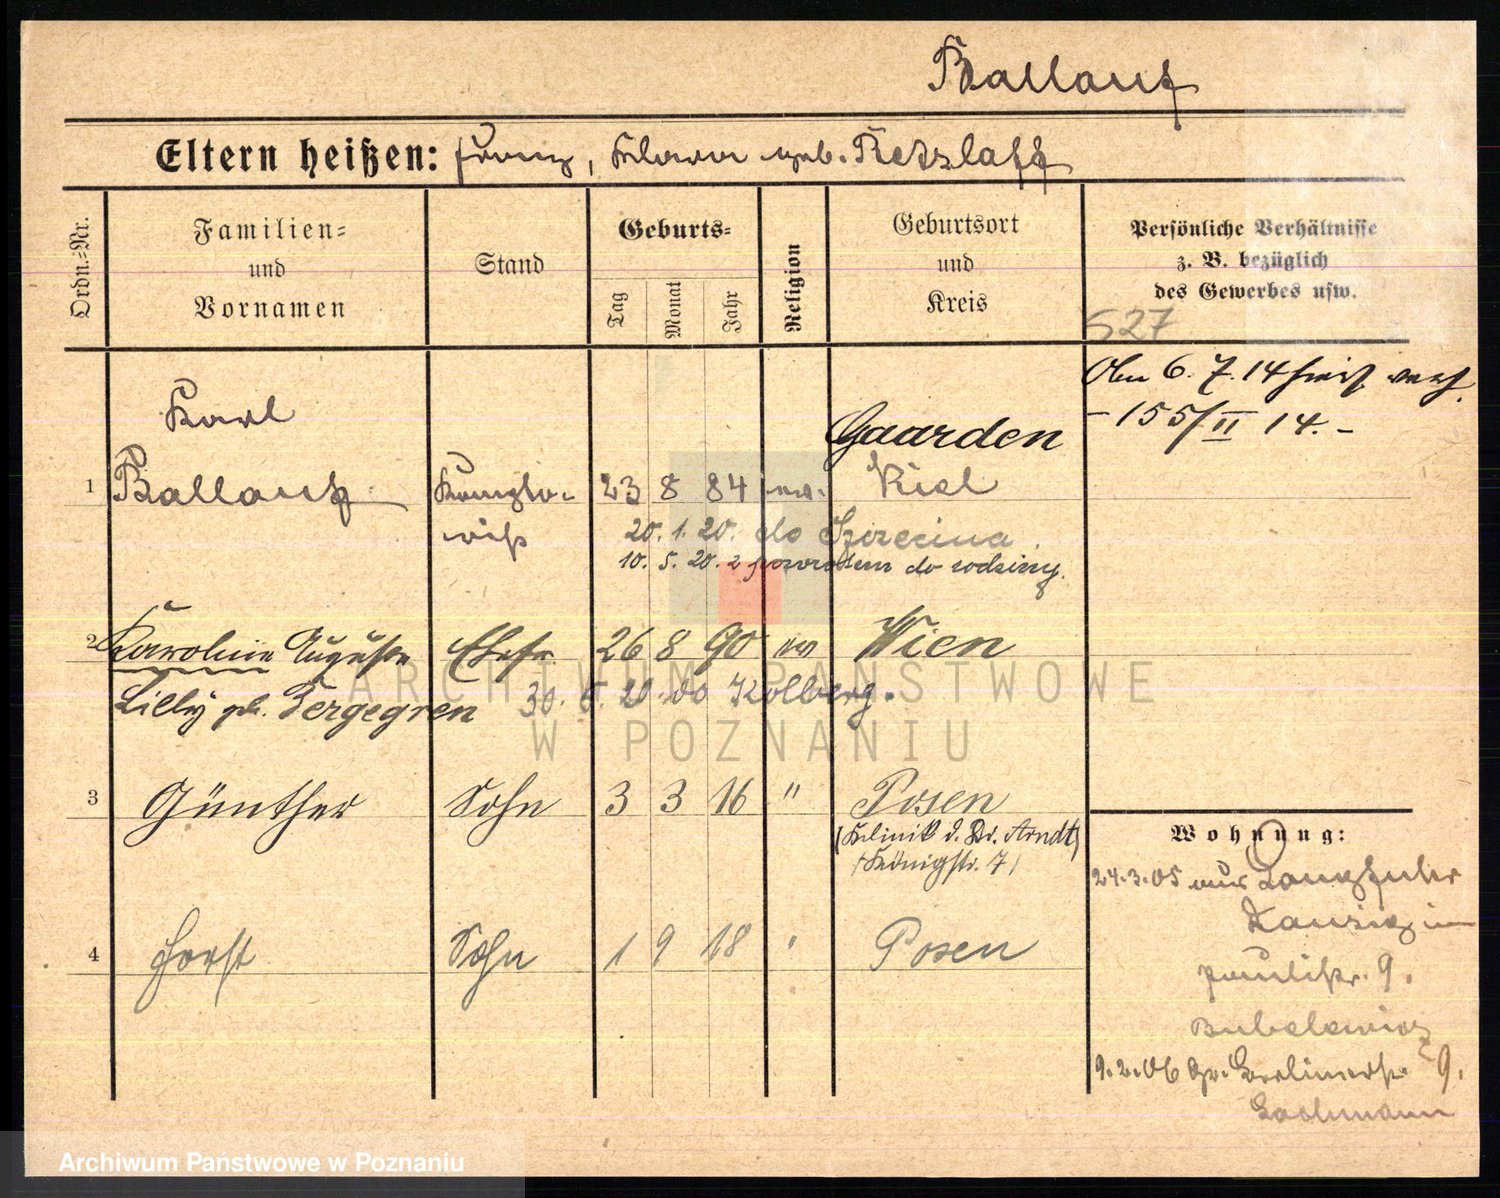 Ballauf
Eltern heißen: Franz, Klara geb. Retzlaff
Ordn.-Nr.
Familien-
und
Vornamen
Stand
Geburts-
Tag
Monat
Jahr
Religion
Geburtsort
und
Kreis
Persönliche Verhältnisse
z. B. bezüglich
des Gewerbes usw.
527
Am 6. 7. 14
- 155/II 14. -
Karl
Gaarden
1 Ballauf 23 8 84 ev. Kiel
20. 1. 20. do Szczecina.
10. 5. 20. z powrotem do rodziny.
2 Karoline Auguste Ehefr. 26 8 90 ev Wien
Lilly geb. Tergegren 30. 5. 20. do Kolberg.
3 Günther Sohn 3 3 16 " Posen
(Klinik d. Dr. Arndt)
(Königstr. 7)
4 Horst Sohn 1 9 18 " Posen
Wohnung:
24.3.05 aus Langfuhr
Danzig in
Paulistr. 9.
9.2.06 Gr. Berlinerstr. 9.
Lachmann
ARCHIWUM PAŃSTWOWE
W POZNANIU
Archiwum Państwowe w Poznaniu